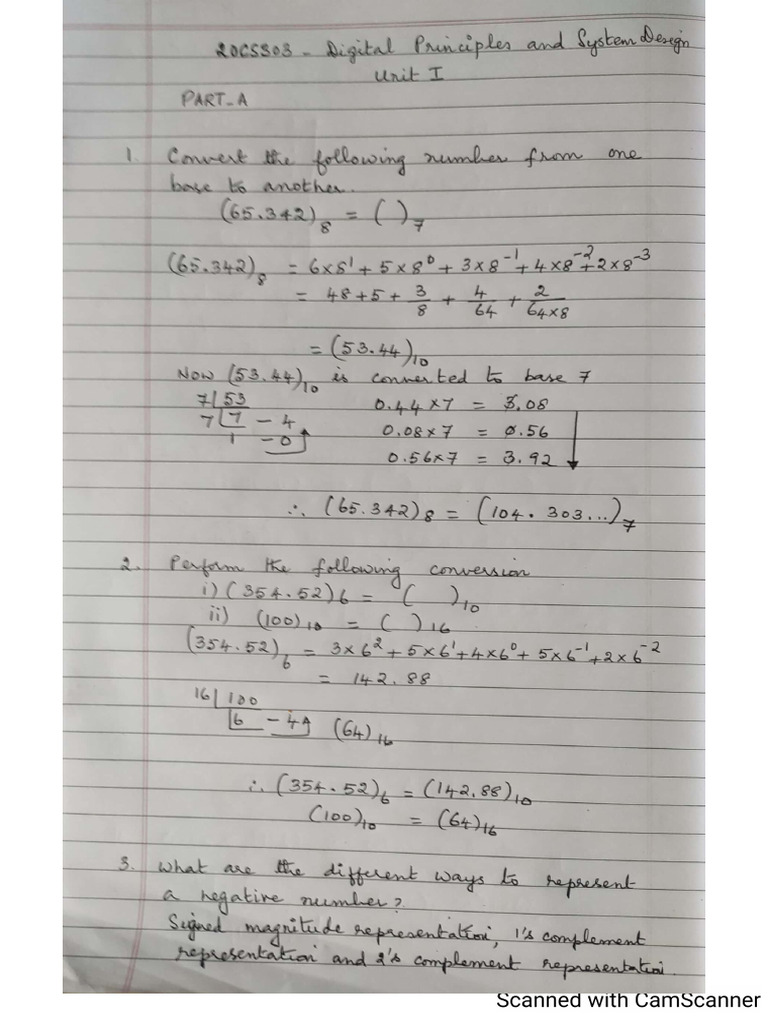 20CS303 - Digital Principles and System Design
Unit I
PART-A
1. Convert the following number from one
base to another.
(65.342)₈ = ( )₇
(65.342)₈ = 6×8¹ + 5×8⁰ + 3×8⁻¹ + 4×8⁻² + 2×8⁻³
= 48 + 5 + 3/8 + 4/64 + 2/64×8
= (53.44)₁₀
Now (53.44)₁₀ is converted to base 7
7 | 53 0.44×7 = 3.08
7 | 7 - 4 0.08×7 = 0.56
1 - 0 0.56×7 = 3.92
∴ (65.342)₈ = (104.303...)₇
2. Perform the following conversion
i) (354.52)₆ = ( )₁₀
ii) (100)₁₀ = ( )₁₆
(354.52)₆ = 3×6² + 5×6¹ + 4×6⁰ + 5×6⁻¹ + 2×6⁻²
= 142.88
16 | 100
6 - 4 (64)₁₆
∴ (354.52)₆ = (142.88)₁₀
(100)₁₀ = (64)₁₆
3. What are the different ways to represent
a negative number?
Signed magnitude representation, 1's complement
representation and 2's complement representation.
Scanned with CamScanner